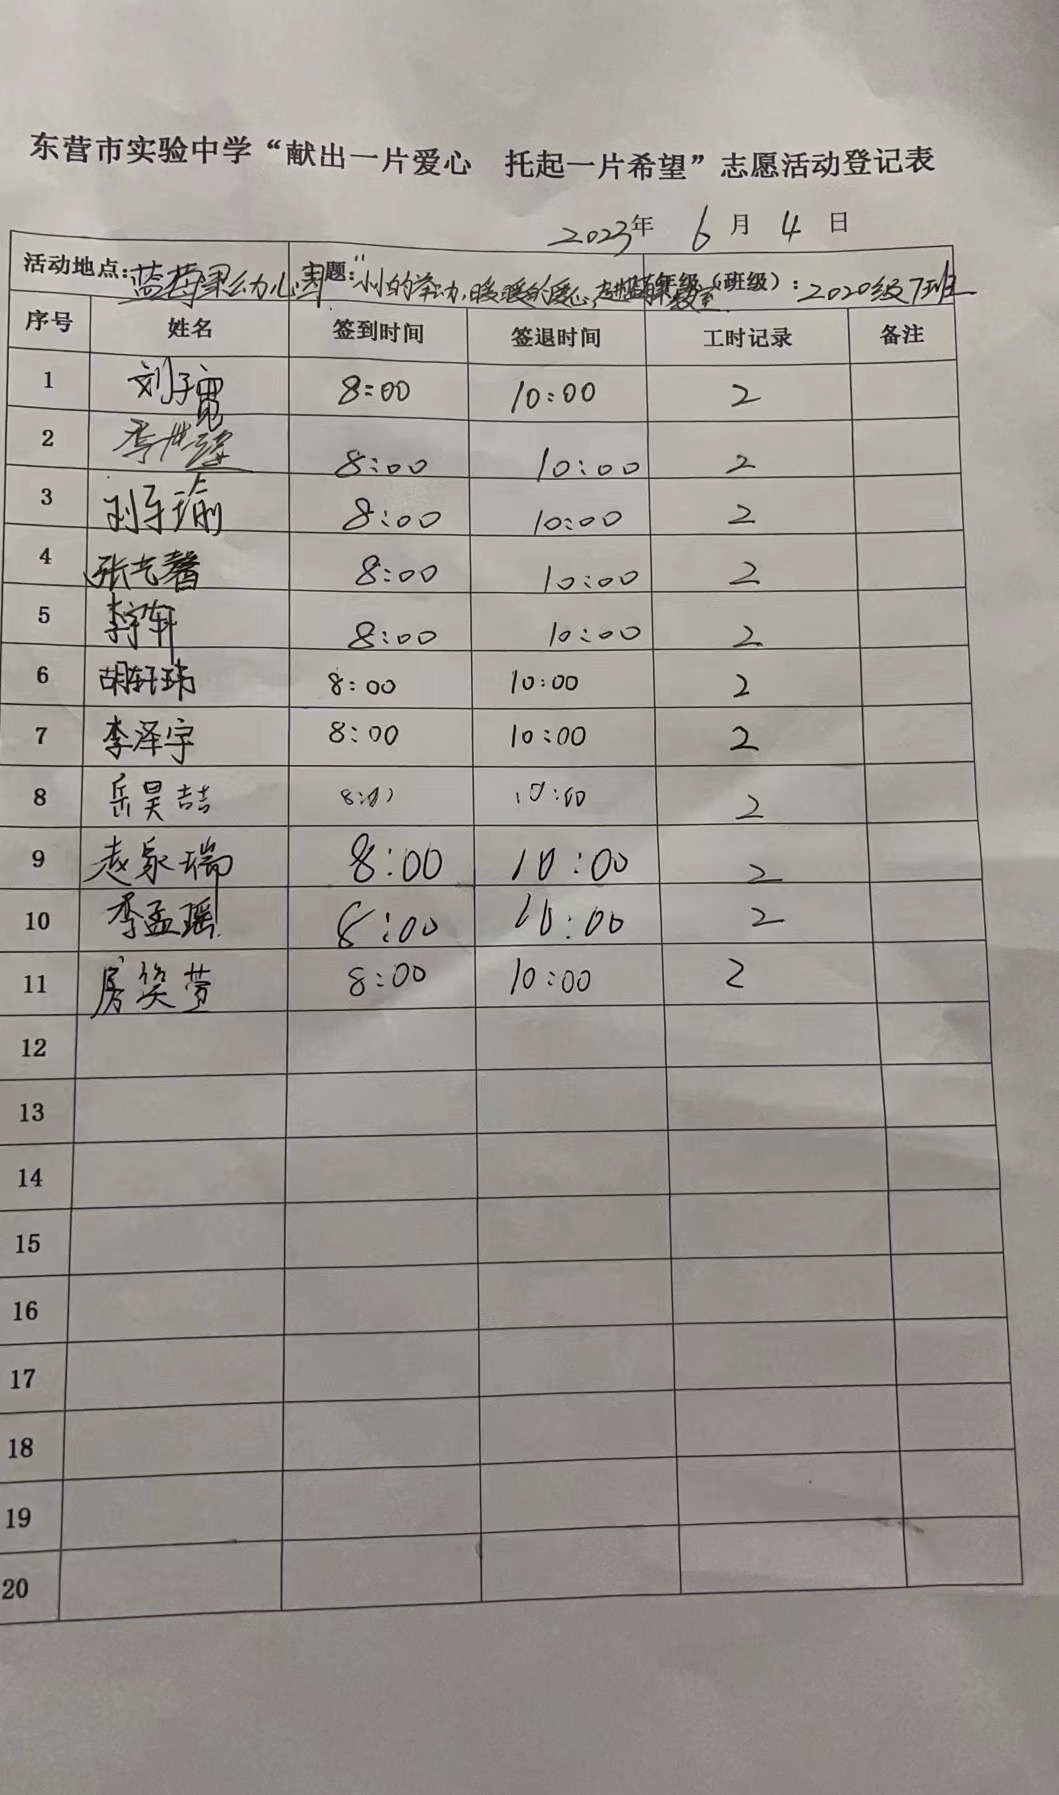 东营市实验中学“献出一片爱心 托起一片希望”志愿活动登记表
2023年 6 月 4 日
活动地点:蓝莓果幼心园 主题:“小小的举动,暖暖的爱心, 年级(班级):2020级7班
序号 姓名 签到时间 签退时间 工时记录 备注
1 刘子 8:00 10:00 2
2 李世 8:00 10:00 2
3 刘子瑜 8:00 10:00 2
4 张艺馨 8:00 10:00 2
5 李宇轩 8:00 10:00 2
6 胡轩玮 8:00 10:00 2
7 李泽宇 8:00 10:00 2
8 岳昊喆 8:00 10:00 2
9 赵家瑞 8:00 10:00 2
10 李孟瑶 8:00 10:00 2
11 房笑萱 8:00 10:00 2
12
13
14
15
16
17
18
19
20